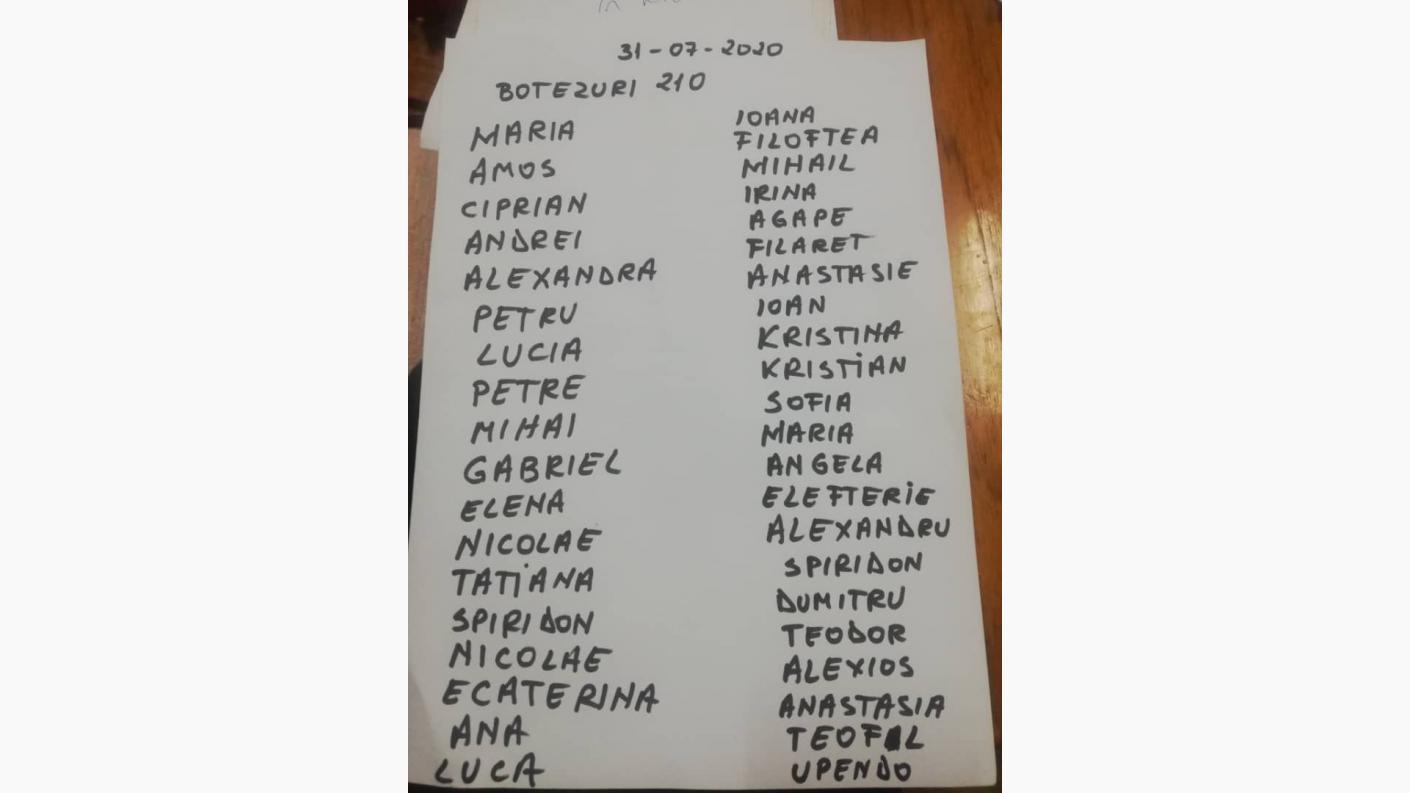 31-07-2020
BOTEZURI 210
MARIA
AMOS
CIPRIAN
ANDREI
ALEXANDRA
PETRU
LUCIA
PETRE
MIHAI
GABRIEL
ELENA
NICOLAE
TATIANA
SPIRIDON
NICOLAE
ECATERINA
ANA
LUCA
IOANA
FILOFTEA
MIHAIL
IRINA
AGAPE
FILARET
ANASTASIE
IOAN
KRISTINA
KRISTIAN
SOFIA
MARIA
ANGELA
ELEFTERIE
ALEXANDRU
SPIRIDON
DUMITRU
TEODOR
ALEXIOS
ANASTASIA
TEOFIL
UPENDO